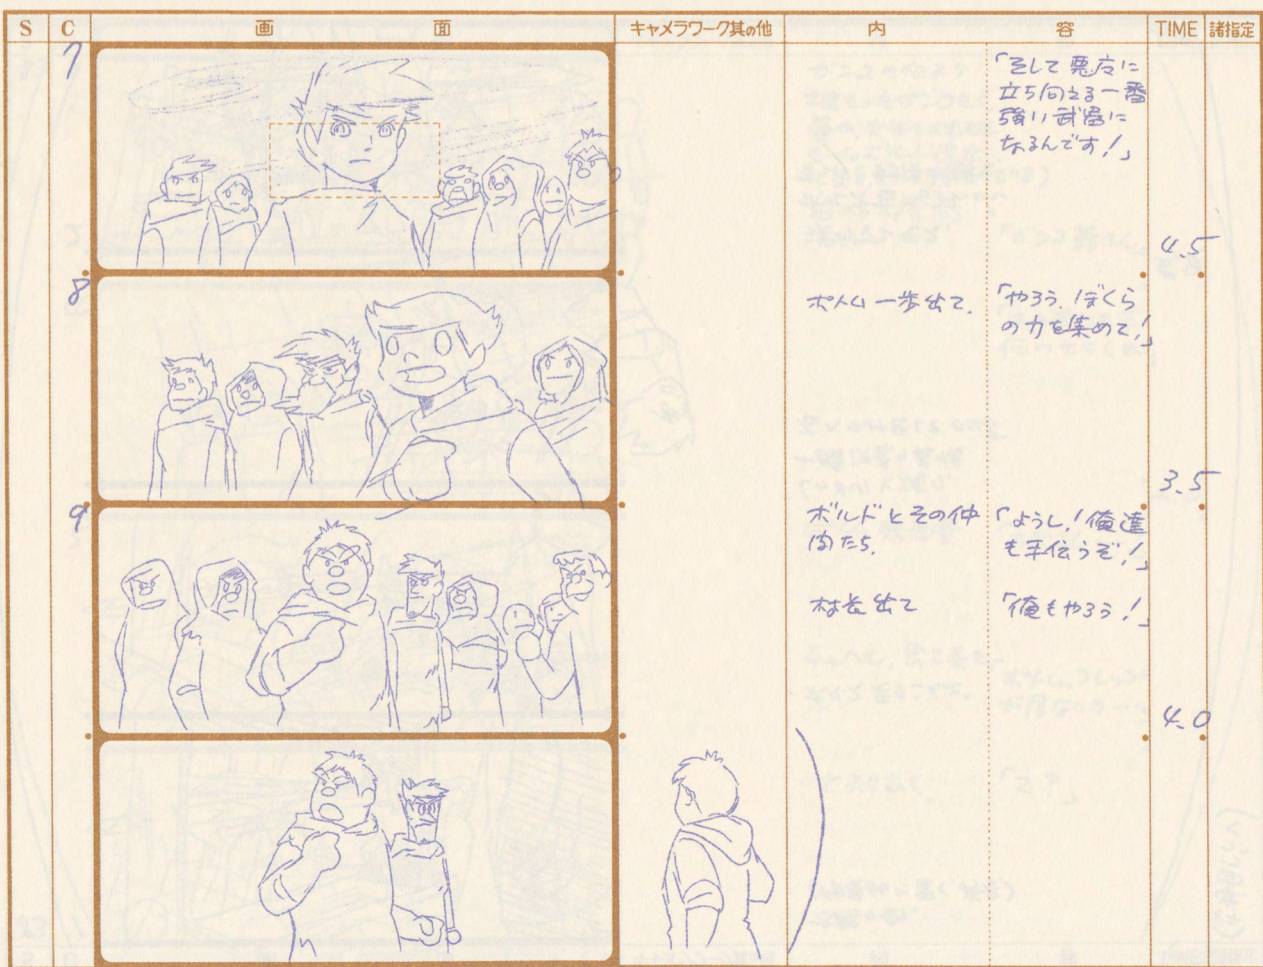 S C 画面 キャメラワーク其の他 内容 TIME 諸指定
7
「そして悪魔に
立ち向える一番
強い武器に
なるんです!」
4.5
8
ポトム一歩出て、
「やろう、ぼくら
の力を集めて!」
3.5
9
ボルドとその仲
間たち、
「ようし!俺達
も手伝うぞ!」
村長出て
「俺もやろう!」
4.0